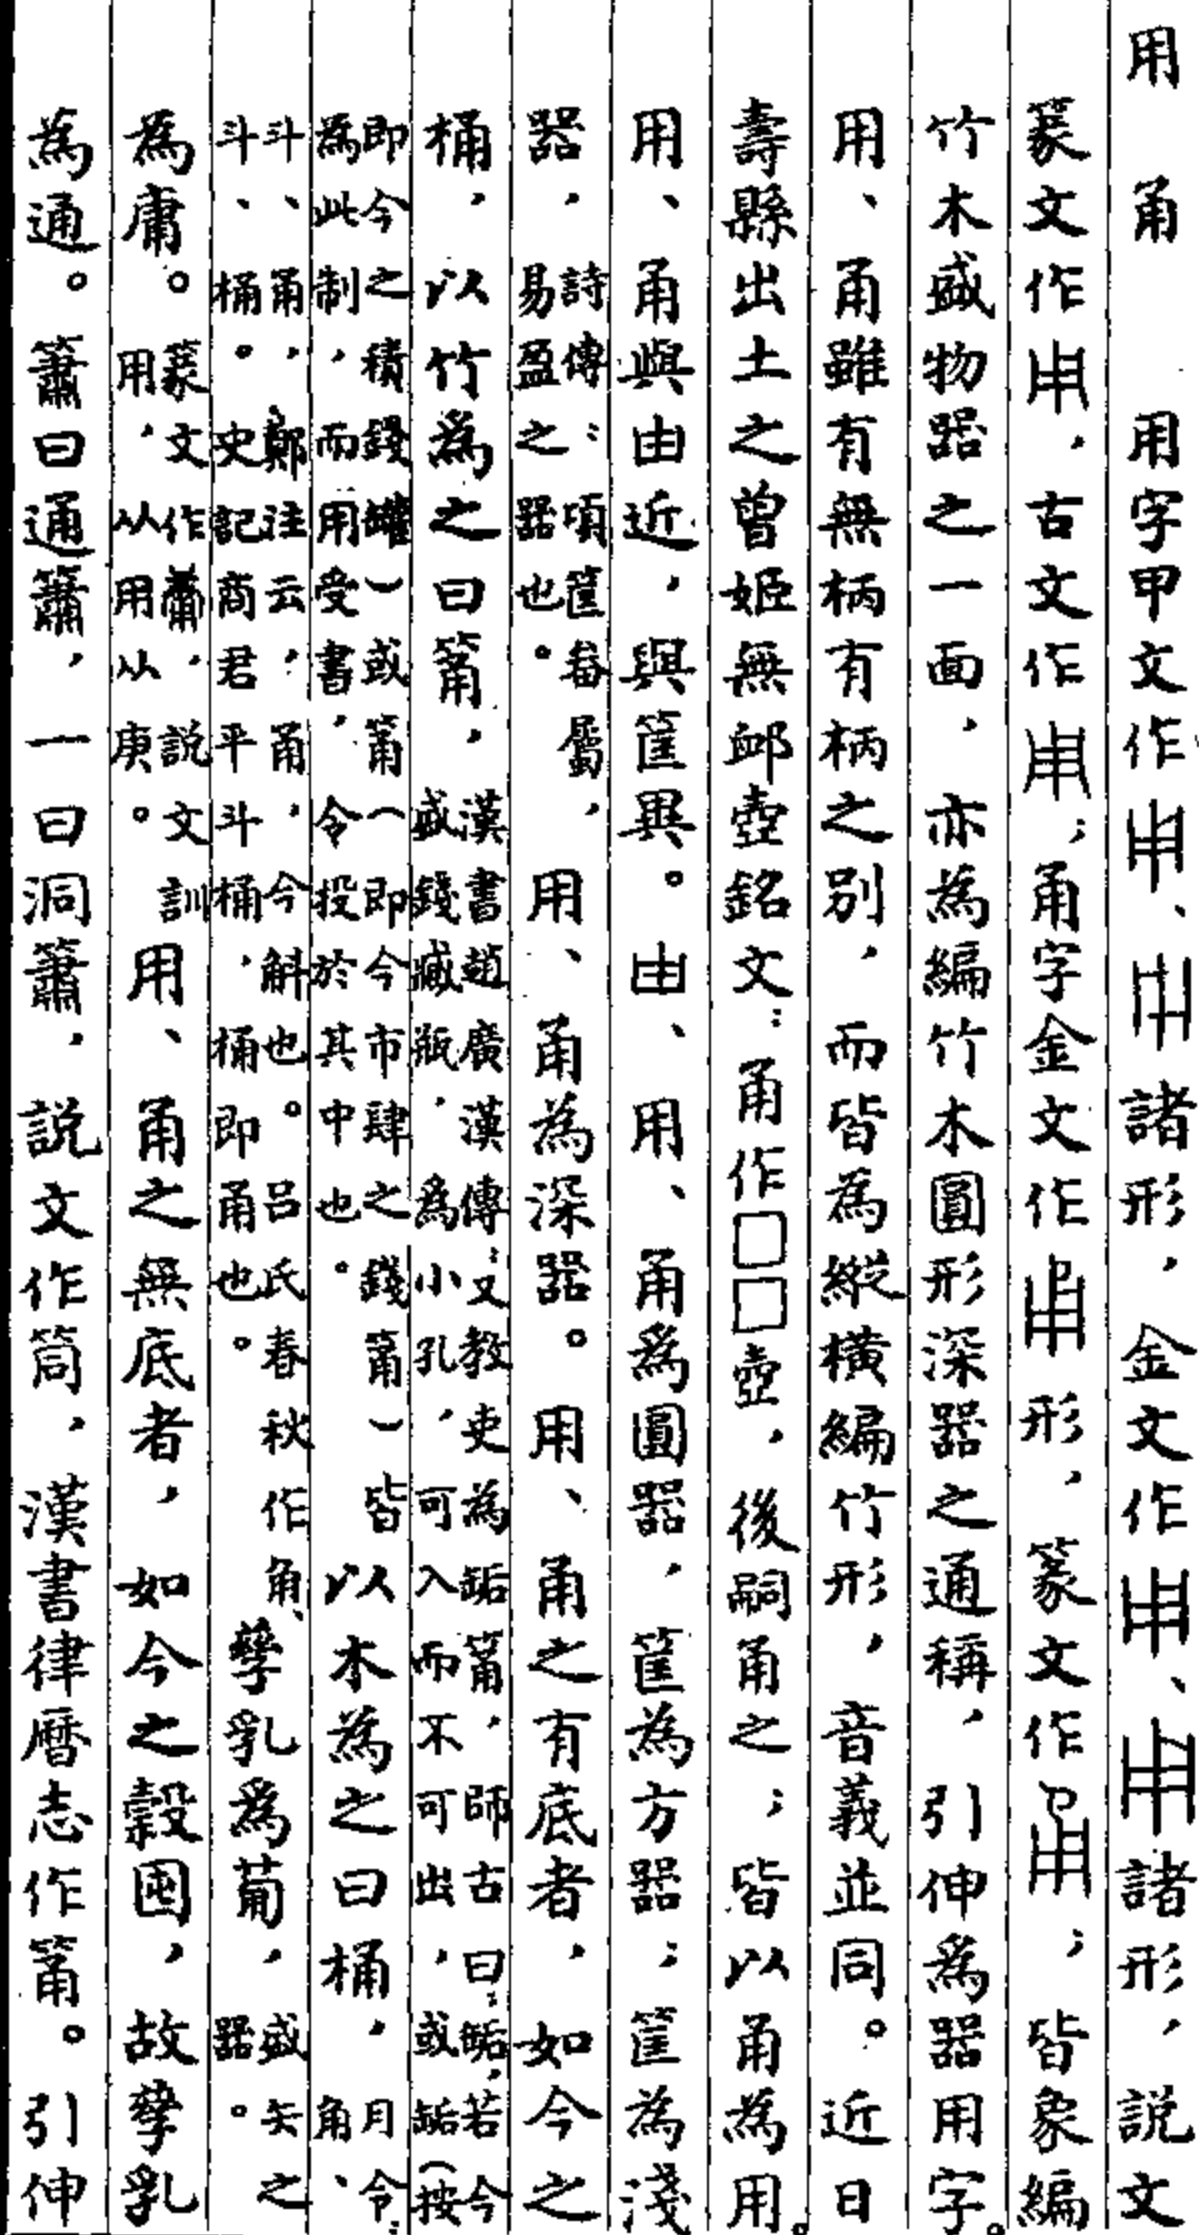 用 甬 用字甲文作、諸形，金文作、諸形，説文
篆文作，古文作；甬字金文作形，篆文作；皆象編
竹木盛物器之一面，亦為編竹木圓形深器之通稱，引伸為器用字。
用、甬雖有無柄有柄之別，而皆為縱橫編竹形，音義並同。近日
壽縣出土之曾姬無卹壺銘文：甬作□□壺，後嗣甬之；皆以甬為用。
用、甬與由近，與筐異。由、用、甬為圓器，筐為方器；筐為淺
器，詩傳：頃筐畚屬，易盈之器也。用、甬為深器。用、甬之有底者，如今之
桶，以竹為之曰筩，漢書趙廣漢傳：又教吏為缿筩，師古曰：缿，若今盛錢臧瓶，為小孔，可入而不可出，或缿（按
即今之積錢罐）或筩（即今市肆之錢筩）皆為此制，而用受書，令投於其中也。以木為之曰桶，月令：角、
斗、甬，鄭注云，甬，今斛也。呂氏春秋作角、斗、桶。史記商君平斗桶，桶即甬也。孳乳為葡，盛矢之器。
為庸。篆文作，説文訓用，从用从庚。用、甬之無底者，如今之穀囤，故孳乳
為通。簫曰通簫，一曰洞簫，説文作筒，漢書律曆志作筩。引伸